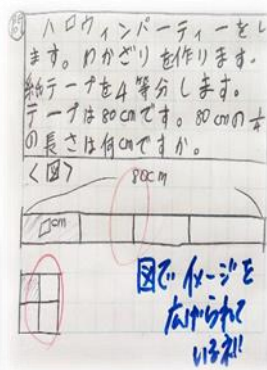 問題
ハロウィンパーティーをし
ます。わかざりを作ります。
紙テープを4等分します。
テープは80cmです。80cmの1/4
の長さは何cmですか。
<図>
80cm
□cm
図でイメージを
広げられて
いるね!!